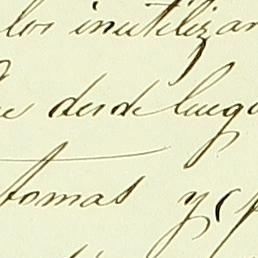 los inutilizar
desde luego
tomas y